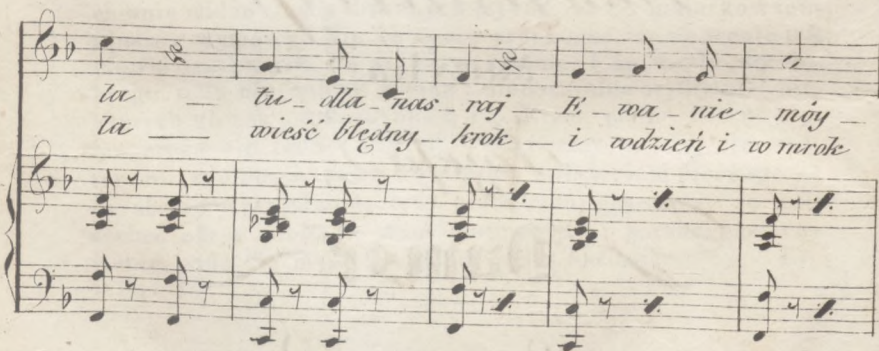 la _ tu _ dla _ nas _ raj _ E _ wa _ nie _ móy _
la _ wieść błędny _ krok _ i wdzień i w mrok